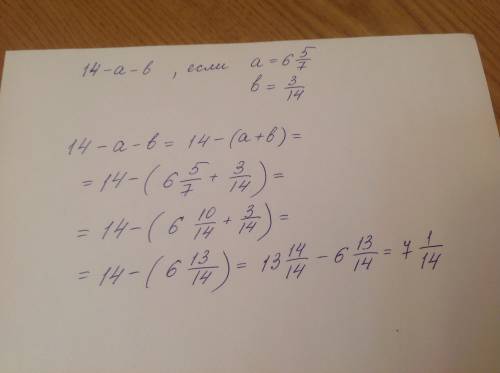 14-a-в , если a=6 5/7
в= 3/14
14-a-в= 14-(a+в)=
=14-(6 5/7 + 3/14)=
=14-(6 10/14 + 3/14)=
=14-(6 13/14)= 13 14/14 - 6 13/14 = 7 1/14